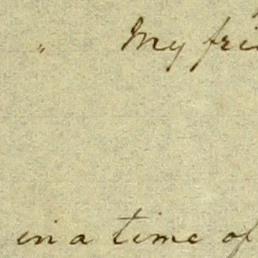 " My fri
in a time of